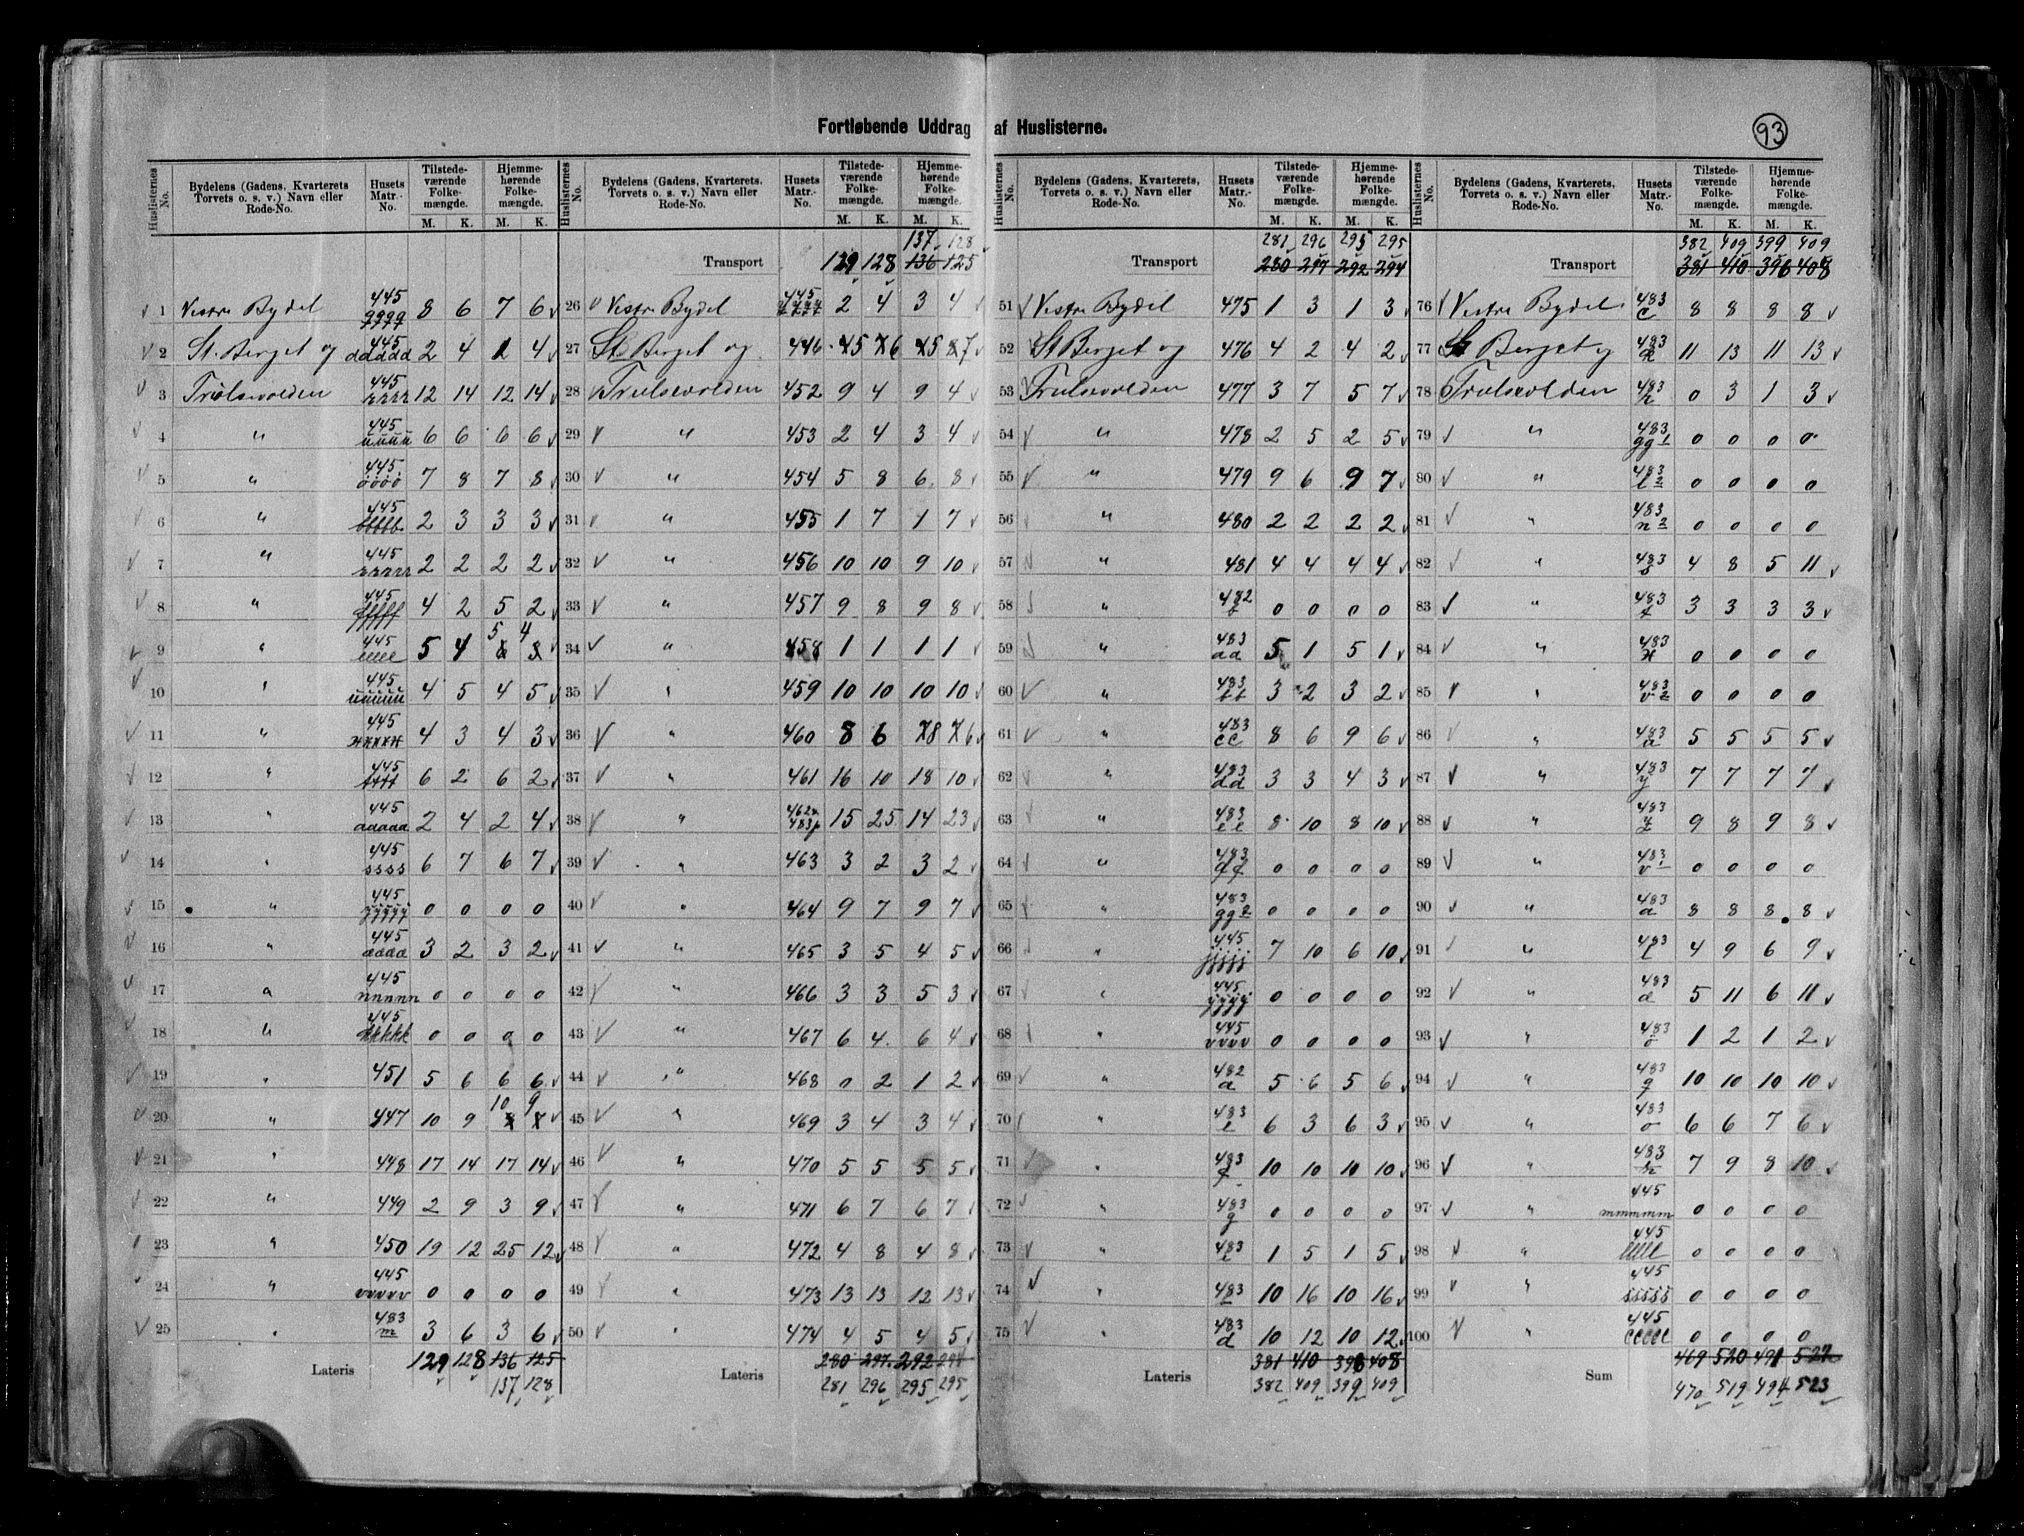 Fortløbende Uddrag af Huslisterne.
93
Huslisternes No. | Bydelens (Gadens, Kvarterets, Torvets o. s. v.) Navn eller Rode-No. | Husets Matr.-No. | Tilstedeværende Folkemængde. M. K. | Hjemmehørende Folkemængde. M. K.
1 Vestre Bydel 445 qqqq 8 6 7 6
2 St. Berget og 445 ddddd 2 4 1 4
3 Trulsevolden 445 rrrr 12 14 12 14
4 " 445 uuuu 6 6 6 6
5 " 445 öööö 7 8 7 8
6 " 445 bbbbb 2 3 3 3
7 " 445 rrrrr 2 2 2 2
8 " 445 fffff 4 2 5 2
9 " 445 eeee 5 4 5 4
10 " 445 uuuuu 4 5 4 5
11 " 445 xxxxx 4 3 4 3
12 " 445 tttt 6 2 6 2
13 " 445 aaaaa 2 4 2 4
14 " 445 ssss 6 7 6 7
15 " 445 0 0 0 0
16 " 445 aaaa 3 2 3 2
17 " 445 nnnnn 0 0 0 0
18 " 445 kkkkk 0 0 0 0
19 " 451 5 6 6 6
20 " 447 10 9 10 9
21 " 448 17 14 17 14
22 " 449 2 9 3 9
23 " 450 19 12 25 12
24 " 445 vvvvv 0 0 0 0
25 " 483 m 3 6 3 6
Lateris 129 128 136 125
137 128
Huslisternes No. | Bydelens (Gadens, Kvarterets, Torvets o. s. v.) Navn eller Rode-No. | Husets Matr.-No. | Tilstedeværende Folkemængde. M. K. | Hjemmehørende Folkemængde. M. K.
137 128
Transport 129 128 136 125
26 Vestre Bydel 445 2 4 3 4
27 St. Berget og 446 5 6 5 7
28 Trulsevolden 452 9 4 9 4
29 " 453 2 4 3 4
30 " 454 5 8 6 8
31 " 455 1 7 1 7
32 " 456 10 10 9 10
33 " 457 9 8 9 8
34 " 458 1 1 1 1
35 " 459 10 10 10 10
36 " 460 8 6 8 6
37 " 461 16 10 18 10
38 " 462 483 15 25 14 23
39 " 463 3 2 3 2
40 " 464 9 7 9 7
41 " 465 3 5 4 5
42 " 466 3 3 5 3
43 " 467 6 4 6 4
44 " 468 0 2 1 2
45 " 469 3 4 3 4
46 " 470 5 5 5 5
47 " 471 6 7 6 7
48 " 472 4 8 4 8
49 " 473 13 13 12 13
50 " 474 4 5 4 5
Lateris 280 297 292 294
281 296 295 295
Huslisternes No. | Bydelens (Gadens, Kvarterets, Torvets o. s. v.) Navn eller Rode-No. | Husets Matr.-No. | Tilstedeværende Folkemængde. M. K. | Hjemmehørende Folkemængde. M. K.
281 296 295 295
Transport 280 297 292 294
51 Vestre Bydel 475 1 3 1 3
52 St Berget og 476 4 2 4 2
53 Trulsevolden 477 3 7 5 7
54 " 478 2 5 2 5
55 " 479 9 6 9 7
56 " 480 2 2 2 2
57 " 481 4 4 4 4
58 " 482 b 0 0 0 0
59 " 483 aa 5 1 5 1
60 " 483 bb 3 2 3 2
61 " 483 cc 8 6 9 6
62 " 483 dd 3 3 4 3
63 " 483 ee 8 10 8 10
64 " 483 ff 0 0 0 0
65 " 483 gg 2 0 0 0 0
66 " 445 jjjjj 7 10 6 10
67 " 445 0 0 0 0
68 " 445 vvvv 0 0 0 0
69 " 482 a 5 6 5 6
70 " 483 e 6 3 6 3
71 " 483 f 10 10 10 10
72 " 483 g 0 0 0 0
73 " 483 i 1 5 1 5
74 " 483 10 16 10 16
75 " 483 d 10 12 10 12
Lateris 381 410 396 408
382 409 399 409
Huslisternes No. | Bydelens (Gadens, Kvarterets, Torvets o. s. v.) Navn eller Rode-No. | Husets Matr.-No. | Tilstedeværende Folkemængde. M. K. | Hjemmehørende Folkemængde. M. K.
382 409 399 409
Transport 381 410 396 408
76 Vestre Bydel 483 c 8 8 8 8
77 St Berget og 483 k 11 13 11 13
78 Trulsevolden 483 h 0 3 1 3
79 " 483 gg 1 0 0 0 0
80 " 483 l 2 0 0 0 0
81 " 483 n 2 0 0 0 0
82 " 483 s 4 8 5 11
83 " 483 t 3 3 3 3
84 " 483 x 0 0 0 0
85 " 483 v 2 0 0 0 0
86 " 483 a 5 5 5 5
87 " 483 y 7 7 7 7
88 " 483 z 9 8 9 8
89 " 483 v 1 0 0 0 0
90 " 483 a 8 8 8 8
91 " 483 l 4 9 6 9
92 " 483 d 5 11 6 11
93 " 483 ö 1 2 1 2
94 " 483 q 10 10 10 10
95 " 483 o 6 6 7 6
96 " 483 7 9 8 10
97 " 445 mmmmm 0 0 0 0
98 " 445 lllll 0 0 0 0
99 " 445 sssss 0 0 0 0
100 " 445 ccccc 0 0 0 0
Sum 469 520 491 522
470 519 494 523